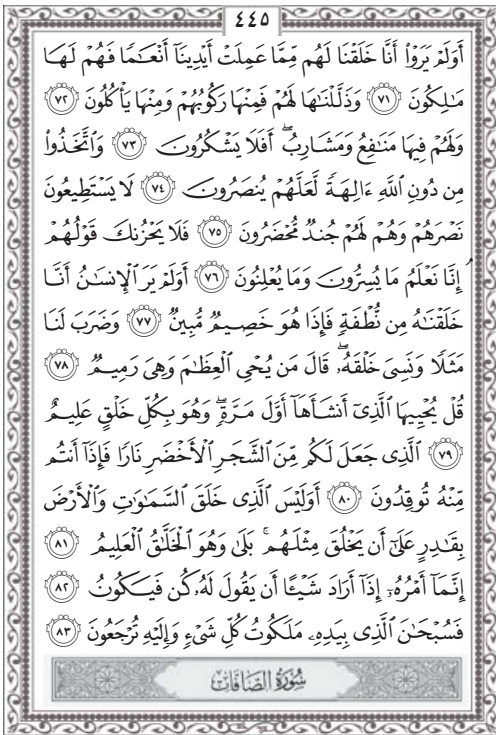 ٤٤٥
أَوَلَمْ يَرَوْا۟ أَنَّا خَلَقْنَا لَهُم مِّمَّا عَمِلَتْ أَيْدِينَآ أَنْعَٰمًا فَهُمْ لَهَا
مَٰلِكُونَ ٧١ وَذَلَّلْنَٰهَا لَهُمْ فَمِنْهَا رَكُوبُهُمْ وَمِنْهَا يَأْكُلُونَ ٧٢
وَلَهُمْ فِيهَا مَنَٰفِعُ وَمَشَارِبُ ۖ أَفَلَا يَشْكُرُونَ ٧٣ وَٱتَّخَذُوا۟
مِن دُونِ ٱللَّهِ ءَالِهَةً لَّعَلَّهُمْ يُنصَرُونَ ٧٤ لَا يَسْتَطِيعُونَ
نَصْرَهُمْ وَهُمْ لَهُمْ جُندٌ مُّحْضَرُونَ ٧٥ فَلَا يَحْزُنكَ قَوْلُهُمْ ۘ
إِنَّا نَعْلَمُ مَا يُسِرُّونَ وَمَا يُعْلِنُونَ ٧٦ أَوَلَمْ يَرَ ٱلْإِنسَٰنُ أَنَّا
خَلَقْنَٰهُ مِن نُّطْفَةٍ فَإِذَا هُوَ خَصِيمٌ مُّبِينٌ ٧٧ وَضَرَبَ لَنَا
مَثَلًا وَنَسِىَ خَلْقَهُۥ ۖ قَالَ مَن يُحْىِ ٱلْعِظَٰمَ وَهِىَ رَمِيمٌ ٧٨
قُلْ يُحْيِيهَا ٱلَّذِىٓ أَنشَأَهَآ أَوَّلَ مَرَّةٍ ۖ وَهُوَ بِكُلِّ خَلْقٍ عَلِيمٌ
٧٩ ٱلَّذِى جَعَلَ لَكُم مِّنَ ٱلشَّجَرِ ٱلْأَخْضَرِ نَارًا فَإِذَآ أَنتُم
مِّنْهُ تُوقِدُونَ ٨٠ أَوَلَيْسَ ٱلَّذِى خَلَقَ ٱلسَّمَٰوَٰتِ وَٱلْأَرْضَ
بِقَٰدِرٍ عَلَىٰٓ أَن يَخْلُقَ مِثْلَهُم ۚ بَلَىٰ وَهُوَ ٱلْخَلَّٰقُ ٱلْعَلِيمُ ٨١
إِنَّمَآ أَمْرُهُۥٓ إِذَآ أَرَادَ شَيْـًٔا أَن يَقُولَ لَهُۥ كُن فَيَكُونُ ٨٢
فَسُبْحَٰنَ ٱلَّذِى بِيَدِهِۦ مَلَكُوتُ كُلِّ شَىْءٍ وَإِلَيْهِ تُرْجَعُونَ ٨٣
سُورَةُ الصَّافَّاتِ